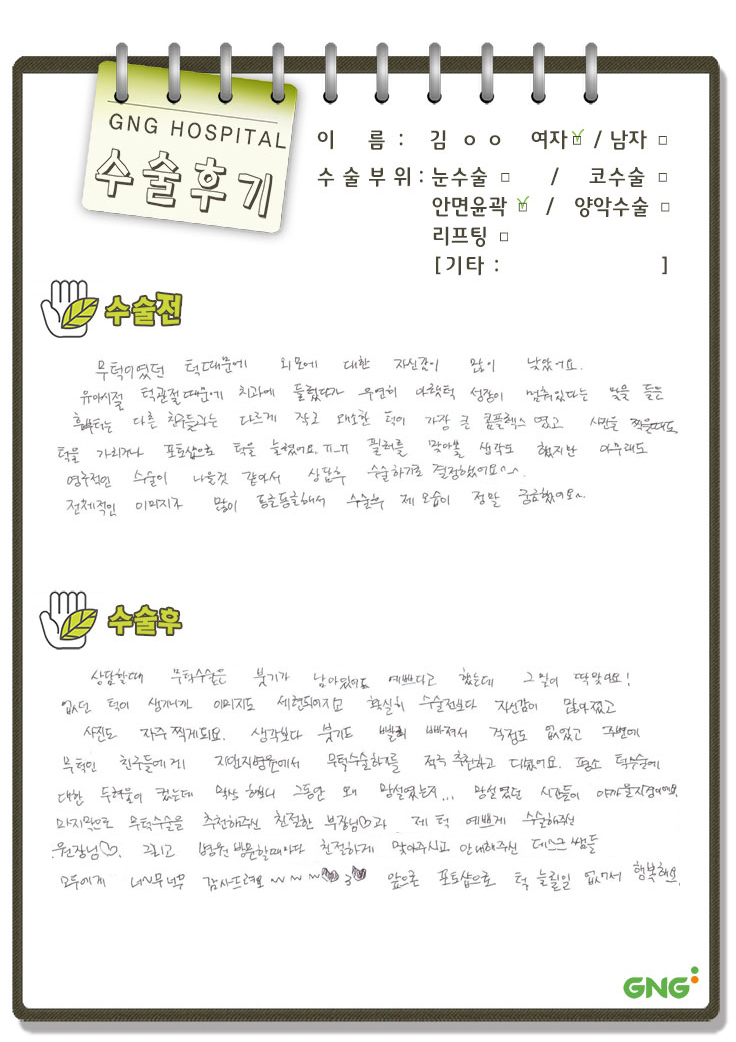 GNG HOSPITAL
수술후기
이 름 : 김 ㅇ ㅇ 여자 / 남자
수술부위 : 눈수술 / 코수술
안면윤곽 / 양악수술
리프팅
[기타 : ]
수술전
무턱이였던 턱때문에 외모에 대한 자신감이 많이 낮았어요.
유아시절 턱관절때문에 치과에 들렸다가 우연히 아랫턱 성장이 멈춰있다는 말을 들은
후부터는 다른 친구들과는 다르게 작고 왜소한 턱이 가장 큰 콤플렉스였고 사진을 찍을때도
턱을 가리거나 포토샵으로 턱을 늘렸어요.ㅠ_ㅠ 필러를 맞아볼 생각도 했지만 아무래도
영구적인 수술이 나을것 같아서 상담후 수술하기로 결정했어요^^.
전체적인 이미지가 많이 동글동글해서 수술후 제 모습이 정말 궁금했어요~
수술후
상담할때 무턱수술은 붓기가 남아있어도 예쁘다고 했는데 그 말이 딱맞아요!
없던 턱이 생기니까 이미지도 세련되어지고 확실히 수술전보다 자신감이 많아졌고
사진도 자주 찍게되요. 생각보다 붓기도 빨리 빠져서 걱정도 없었고 주변에
무턱인 친구들에게 지앤지병원에서 무턱수술하기를 적극 추천하고 다녔어요. 평소 턱수술에
대한 두려움이 컸는데 막상 하니 그동안 왜 망설였는지... 망설였던 시간들이 아까울지경이에요.
마지막으로 무턱수술을 추천해주신 친절한 부장님♡과 제 턱 예쁘게 수술해주신
원장님♡. 그리고 병원 방문할때마다 친절하게 맞아주시고 안내해주신 데스크 쌤들
모두에게 너~무너무 감사드려요 ~~~♥3♥ 앞으론 포토샵으로 턱 늘릴일 없어서 행복해요.
GNG